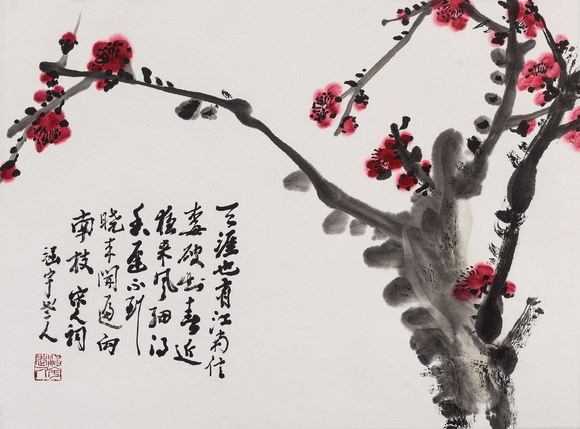 天涯也有江南信
梅破知春近
来风细得
香迟不到
晓来开遍向
南枝 宋人词
涵宇 人